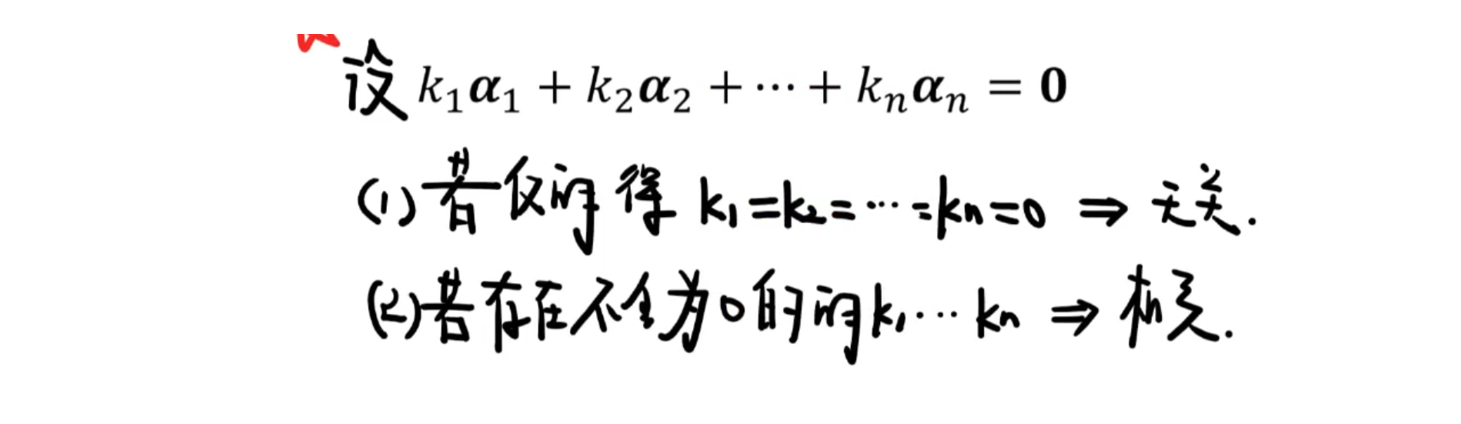 设 k₁α₁ + k₂α₂ + ⋯ + kₙαₙ = 0
(1) 若仅可得 k₁=k₂=⋯=kn=0 ⇒ 无关.
(2) 若存在不全为0的 k₁⋯kn ⇒ 相关.